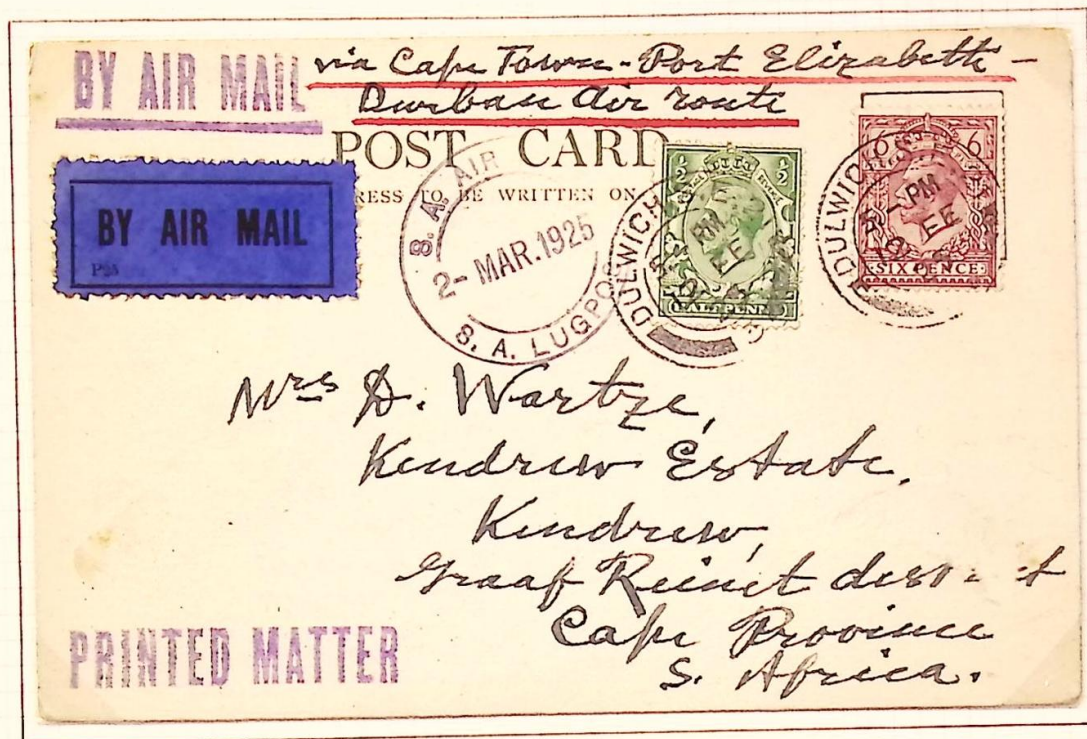 BY AIR MAIL
via Cape Town - Port Elizabeth -
Durban Air route
POST CARD
TO BE WRITTEN ON
BY AIR MAIL
P25
S. A. AIR
2- MAR. 1925
S. A. LUGPOS
DULWICH
PM
FE
HALFPENNY
6 6
DULWICH
PM
FE
SIX PENCE
Mrs D. Wartze,
Kendrew Estate,
Kendrew,
Graaf Reinet
Cape Province
S. Africa.
PRINTED MATTER